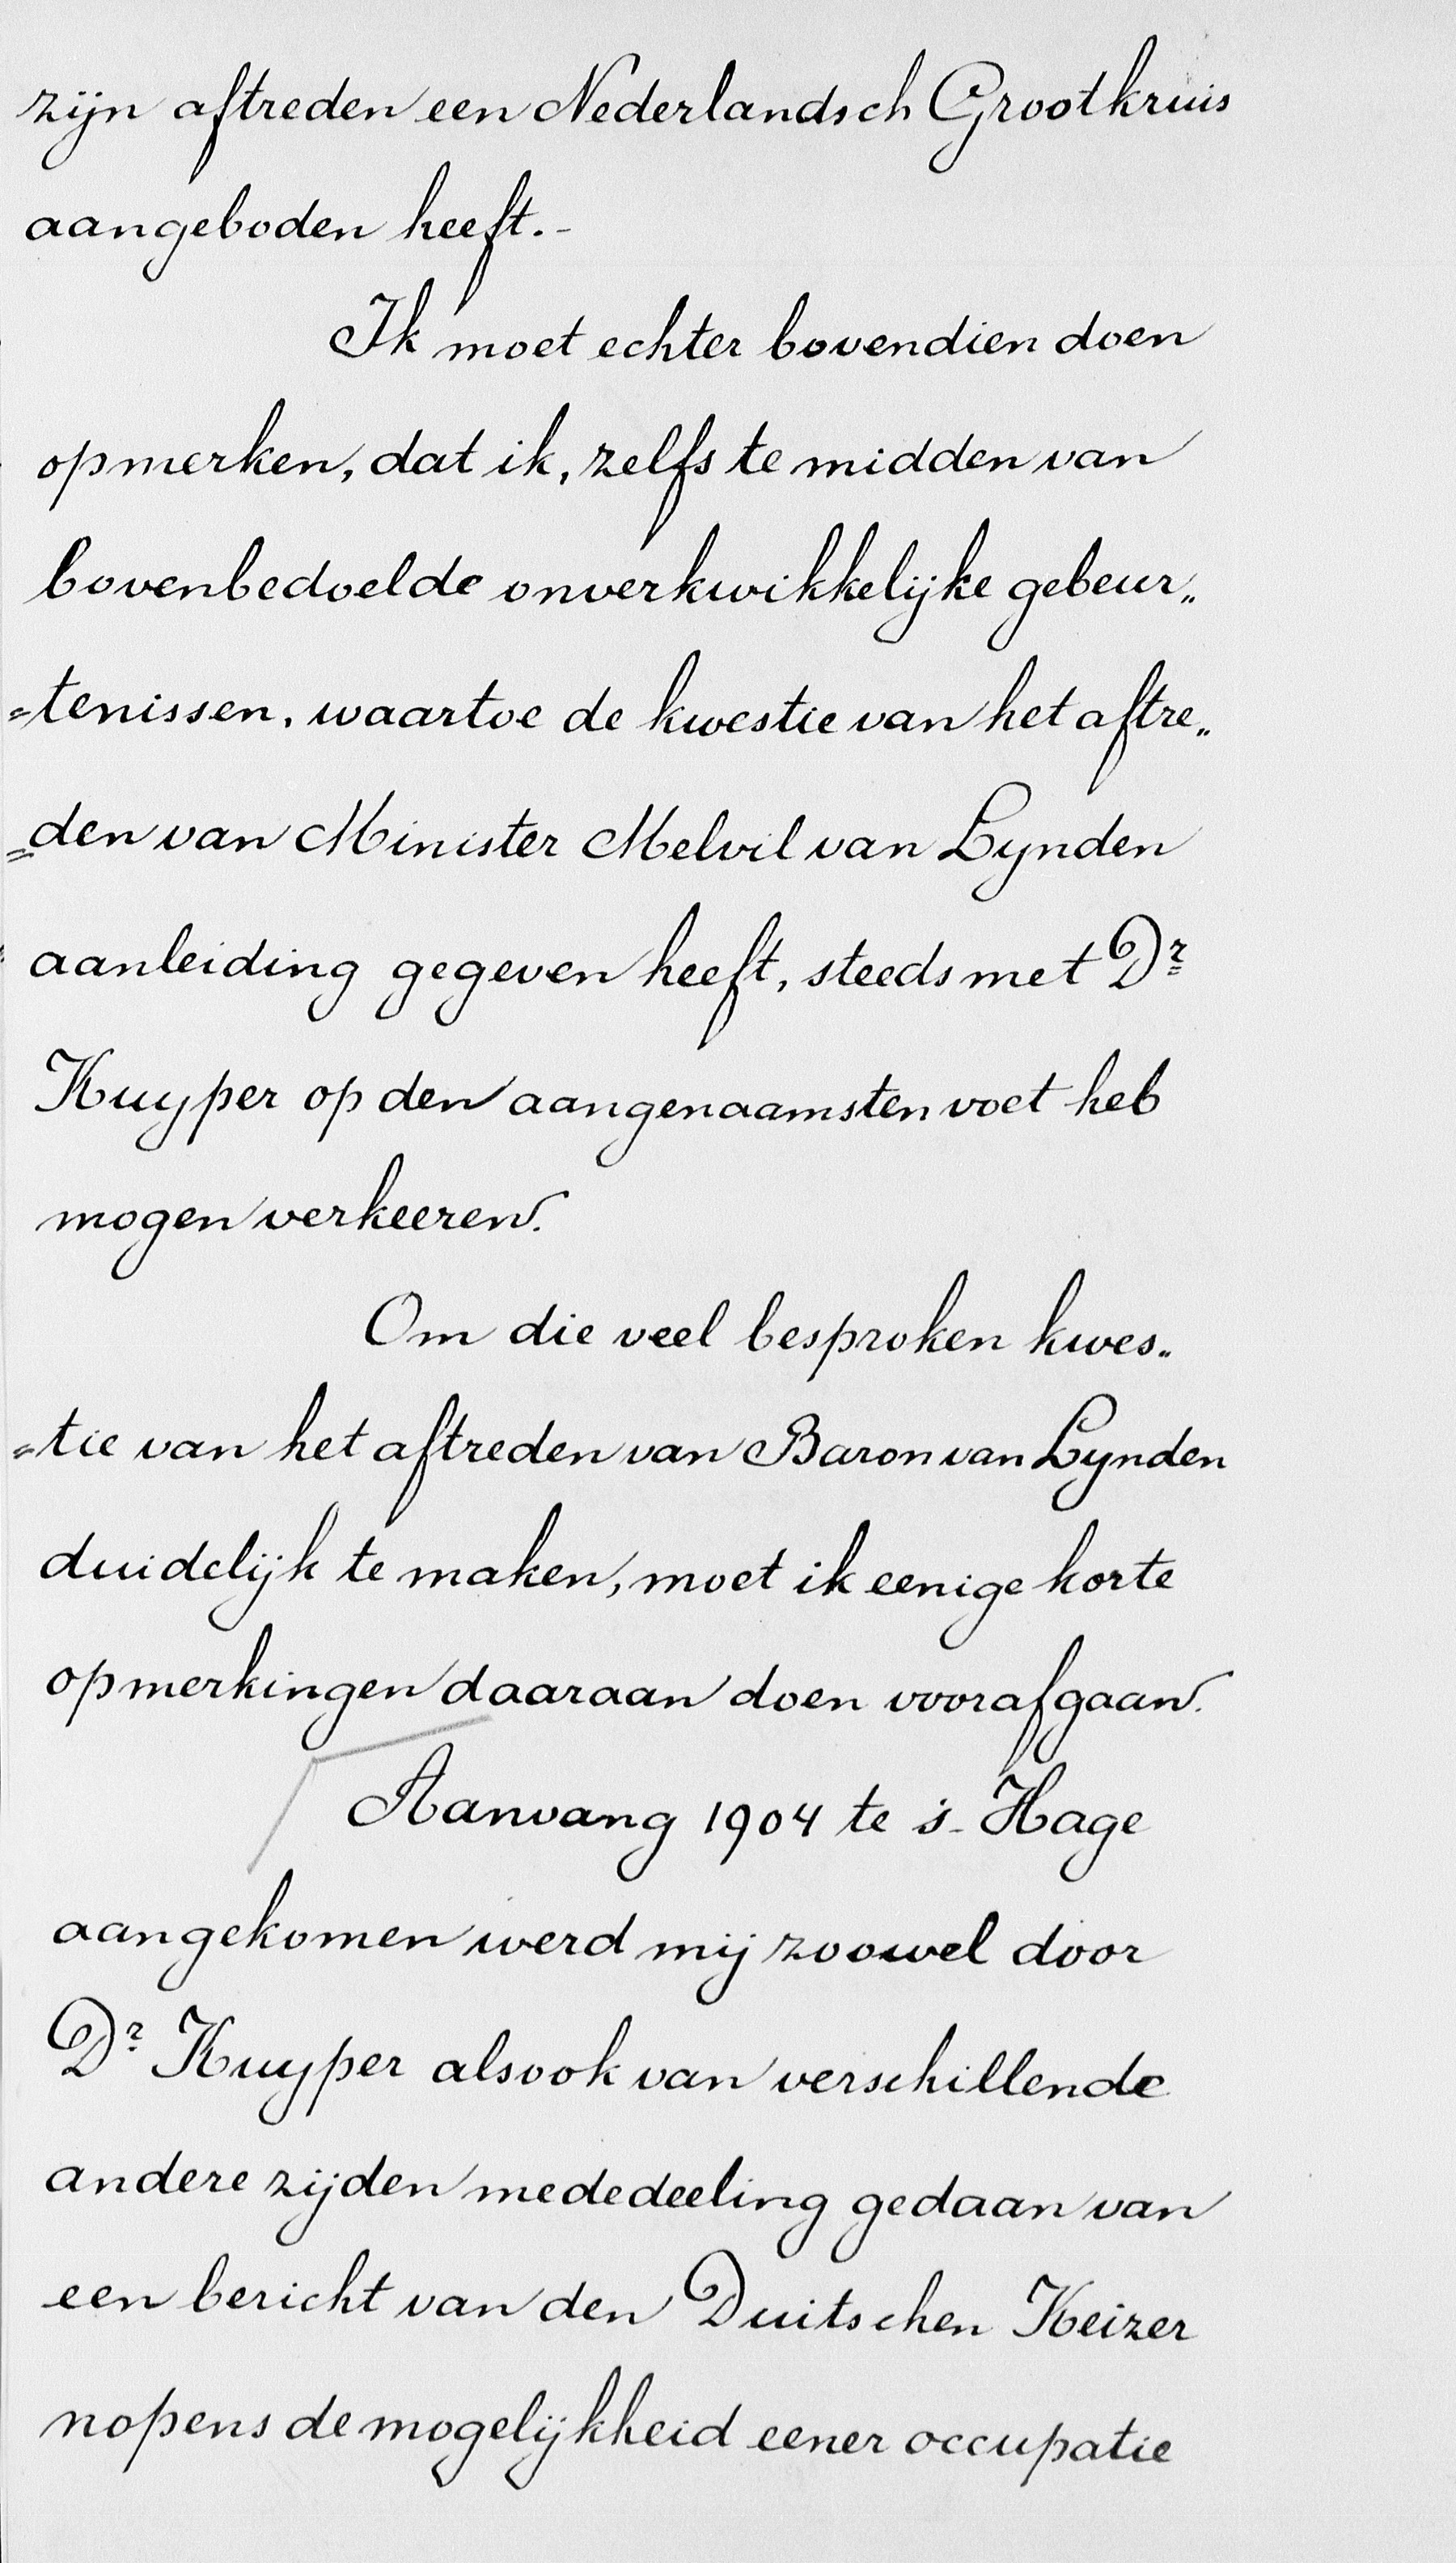 zijn aftreden een Nederlandsch Grootkruis
aangeboden heeft.-
Ik moet echter bovendien doen
opmerken, dat ik, zelfs te midden van
bovenbedoelde onverkwikkelijke gebeur„
=tenissen, waartoe de kwestie van het aftre„
=den van Minister Melvil van Lynden
aanleiding gegeven heeft, steeds met Dr
Kuyper op den aangenaamsten voet heb
mogen verkeeren.
Om die veel besproken kwes„
=tie van het aftreden van Baron van Lynden
duidelijk te maken, moet ik eenige korte
opmerkingen daaraan doen voorafgaan.
Aanvang 1904 te 's-Hage
aangekomen werd mij zoowel door
Dr Kuyper alsook van verschillende
andere zijden mededeeling gedaan van
een bericht van den Duitschen Keizer
nopens de mogelijkheid eener occupatie